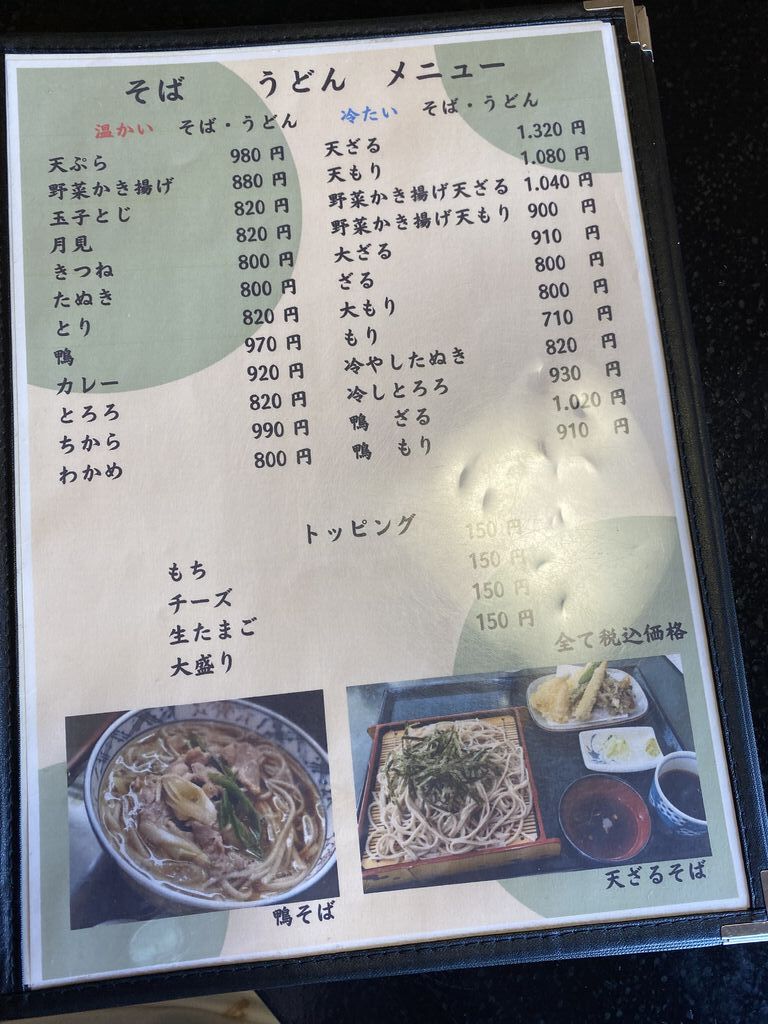 そば うどん メニュー
温かい そば・うどん
天ぷら 980 円
野菜かき揚げ 880 円
玉子とじ 820 円
月見 820 円
きつね 800 円
たぬき 800 円
とり 820 円
鴨 970 円
カレー 920 円
とろろ 820 円
ちから 990 円
わかめ 800 円
冷たい そば・うどん
天ざる 1.320 円
天もり 1.080 円
野菜かき揚げ天ざる 1.040 円
野菜かき揚げ天もり 900 円
大ざる 910 円
ざる 800 円
大もり 800 円
もり 710 円
冷やしたぬき 820 円
冷しとろろ 930 円
鴨 ざる 1.020 円
鴨 もり 910 円
トッピング
もち 150 円
チーズ 150 円
生たまご 150 円
大盛り 150 円
全て税込価格
鴨そば
天ざるそば